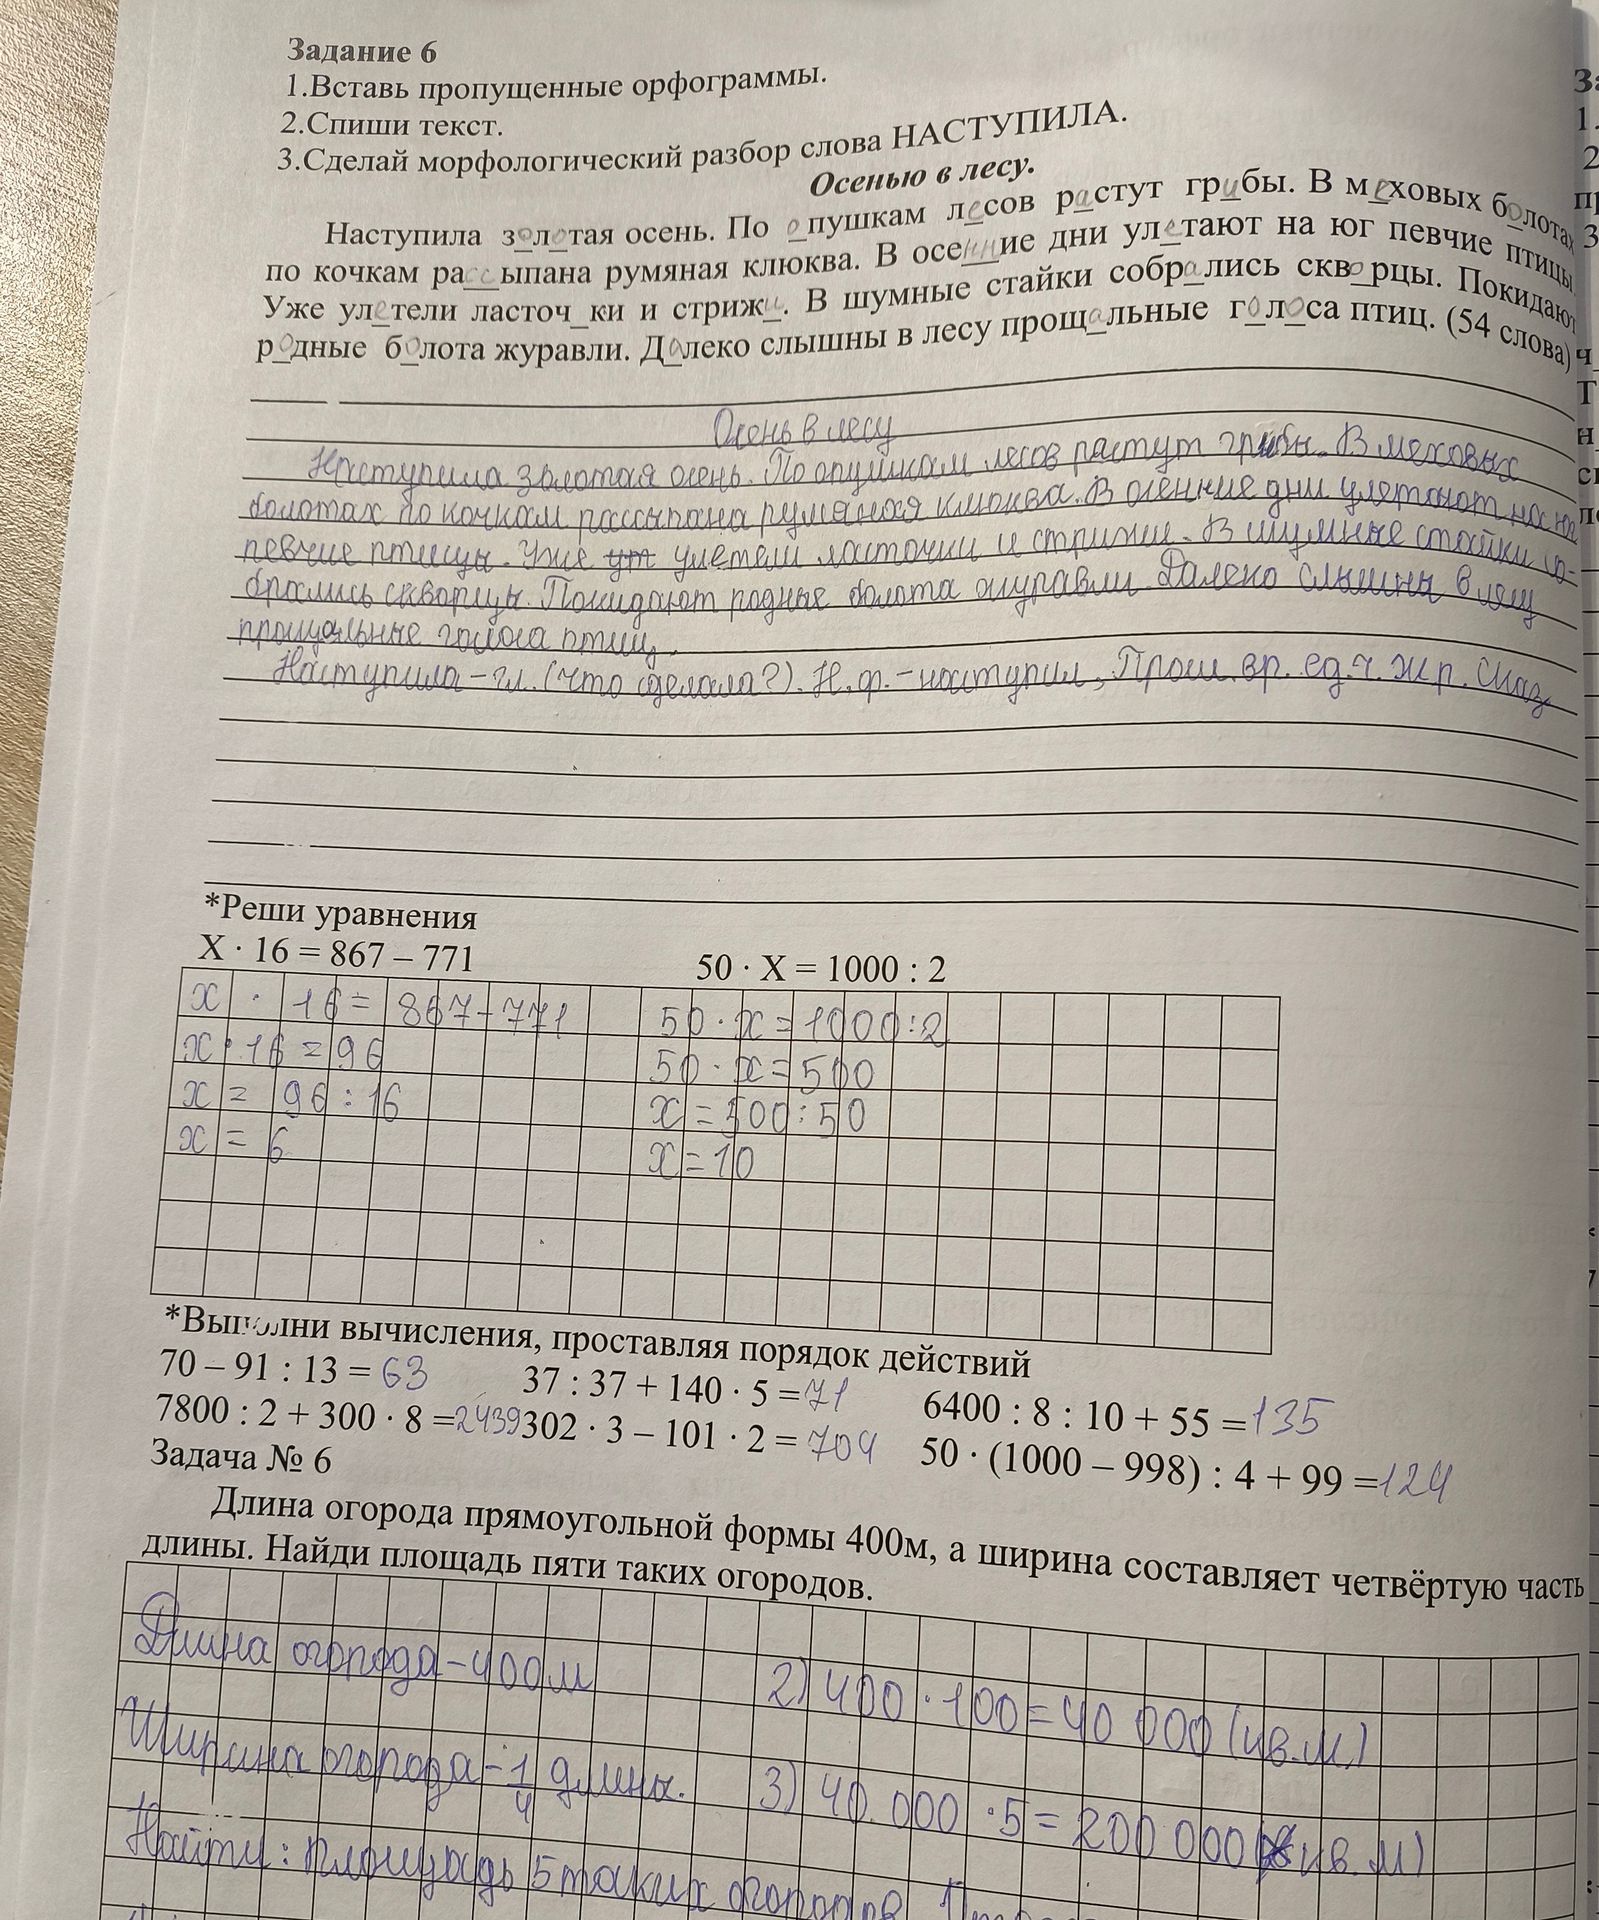 Задание 6
1.Вставь пропущенные орфограммы.
2.Спиши текст.
3.Сделай морфологический разбор слова НАСТУПИЛА.
Осенью в лесу.
Наступила золотая осень. По опушкам лесов растут грибы. В меховых болотах
по кочкам рассыпана румяная клюква. В осенние дни улетают на юг певчие птицы.
Уже улетели ласточ_ки и стрижи. В шумные стайки собрались скворцы. Покидают
родные болота журавли. Далеко слышны в лесу прощальные голоса птиц. (54 слова)
Осень в лесу
Наступила золотая осень. По опушкам лесов растут грибы. В меховых
болотах по кочкам рассыпана румяная клюква. В осенние дни улетают на юг
певчие птицы. Уже ул улетели ласточки и стрижи. В шумные стайки со-
брались скворцы. Покидают родные болота журавли. Далеко слышны в лесу
прощальные голоса птиц.
Наступила – гл. (что сделала?). Н. ф. – наступил, Прош. вр. ед. ч. Ж р. Сказ.
*Реши уравнения
X · 16 = 867 – 771
50 · X = 1000 : 2
x · 16 = 867 - 771
50 · x = 1000 : 2
x · 16 = 96
50 · x = 500
x = 96 : 16
x = 500 : 50
x = 6
x = 10
*Выполни вычисления, проставляя порядок действий
70 – 91 : 13 = 63
37 : 37 + 140 · 5 = 71
6400 : 8 : 10 + 55 = 135
7800 : 2 + 300 · 8 = 2439
302 · 3 – 101 · 2 = 704
50 · (1000 – 998) : 4 + 99 = 124
Задача № 6
Длина огорода прямоугольной формы 400м, а ширина составляет четвёртую часть
длины. Найди площадь пяти таких огородов.
Длина огорода – 400 м
2) 400 · 100 = 40 000 (кв. м)
Ширина огорода – 1/4 длины.
3) 40.000 · 5 = 200 000 (кв. м)
Найти: площадь 5 таких огородов